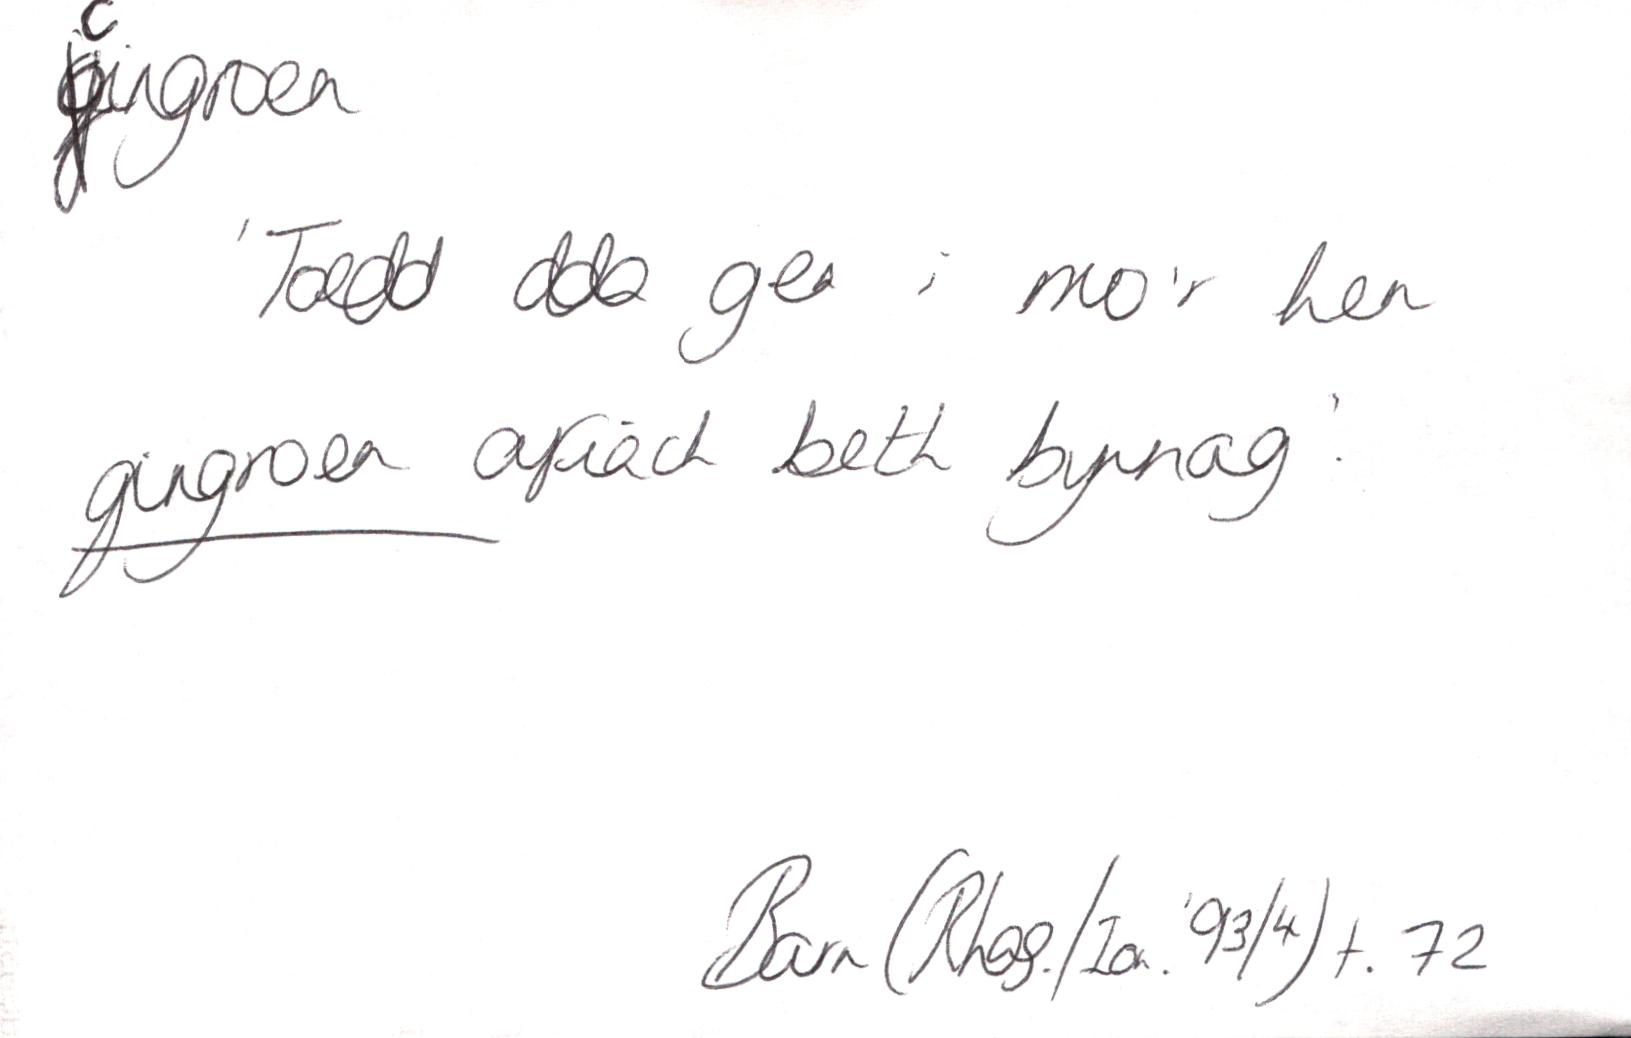 cingroen
'Toedd dda gen i mo'r hen
gingroen afiach beth bynnag'.
Barn (Rhag./Ion. '93/4) t. 72